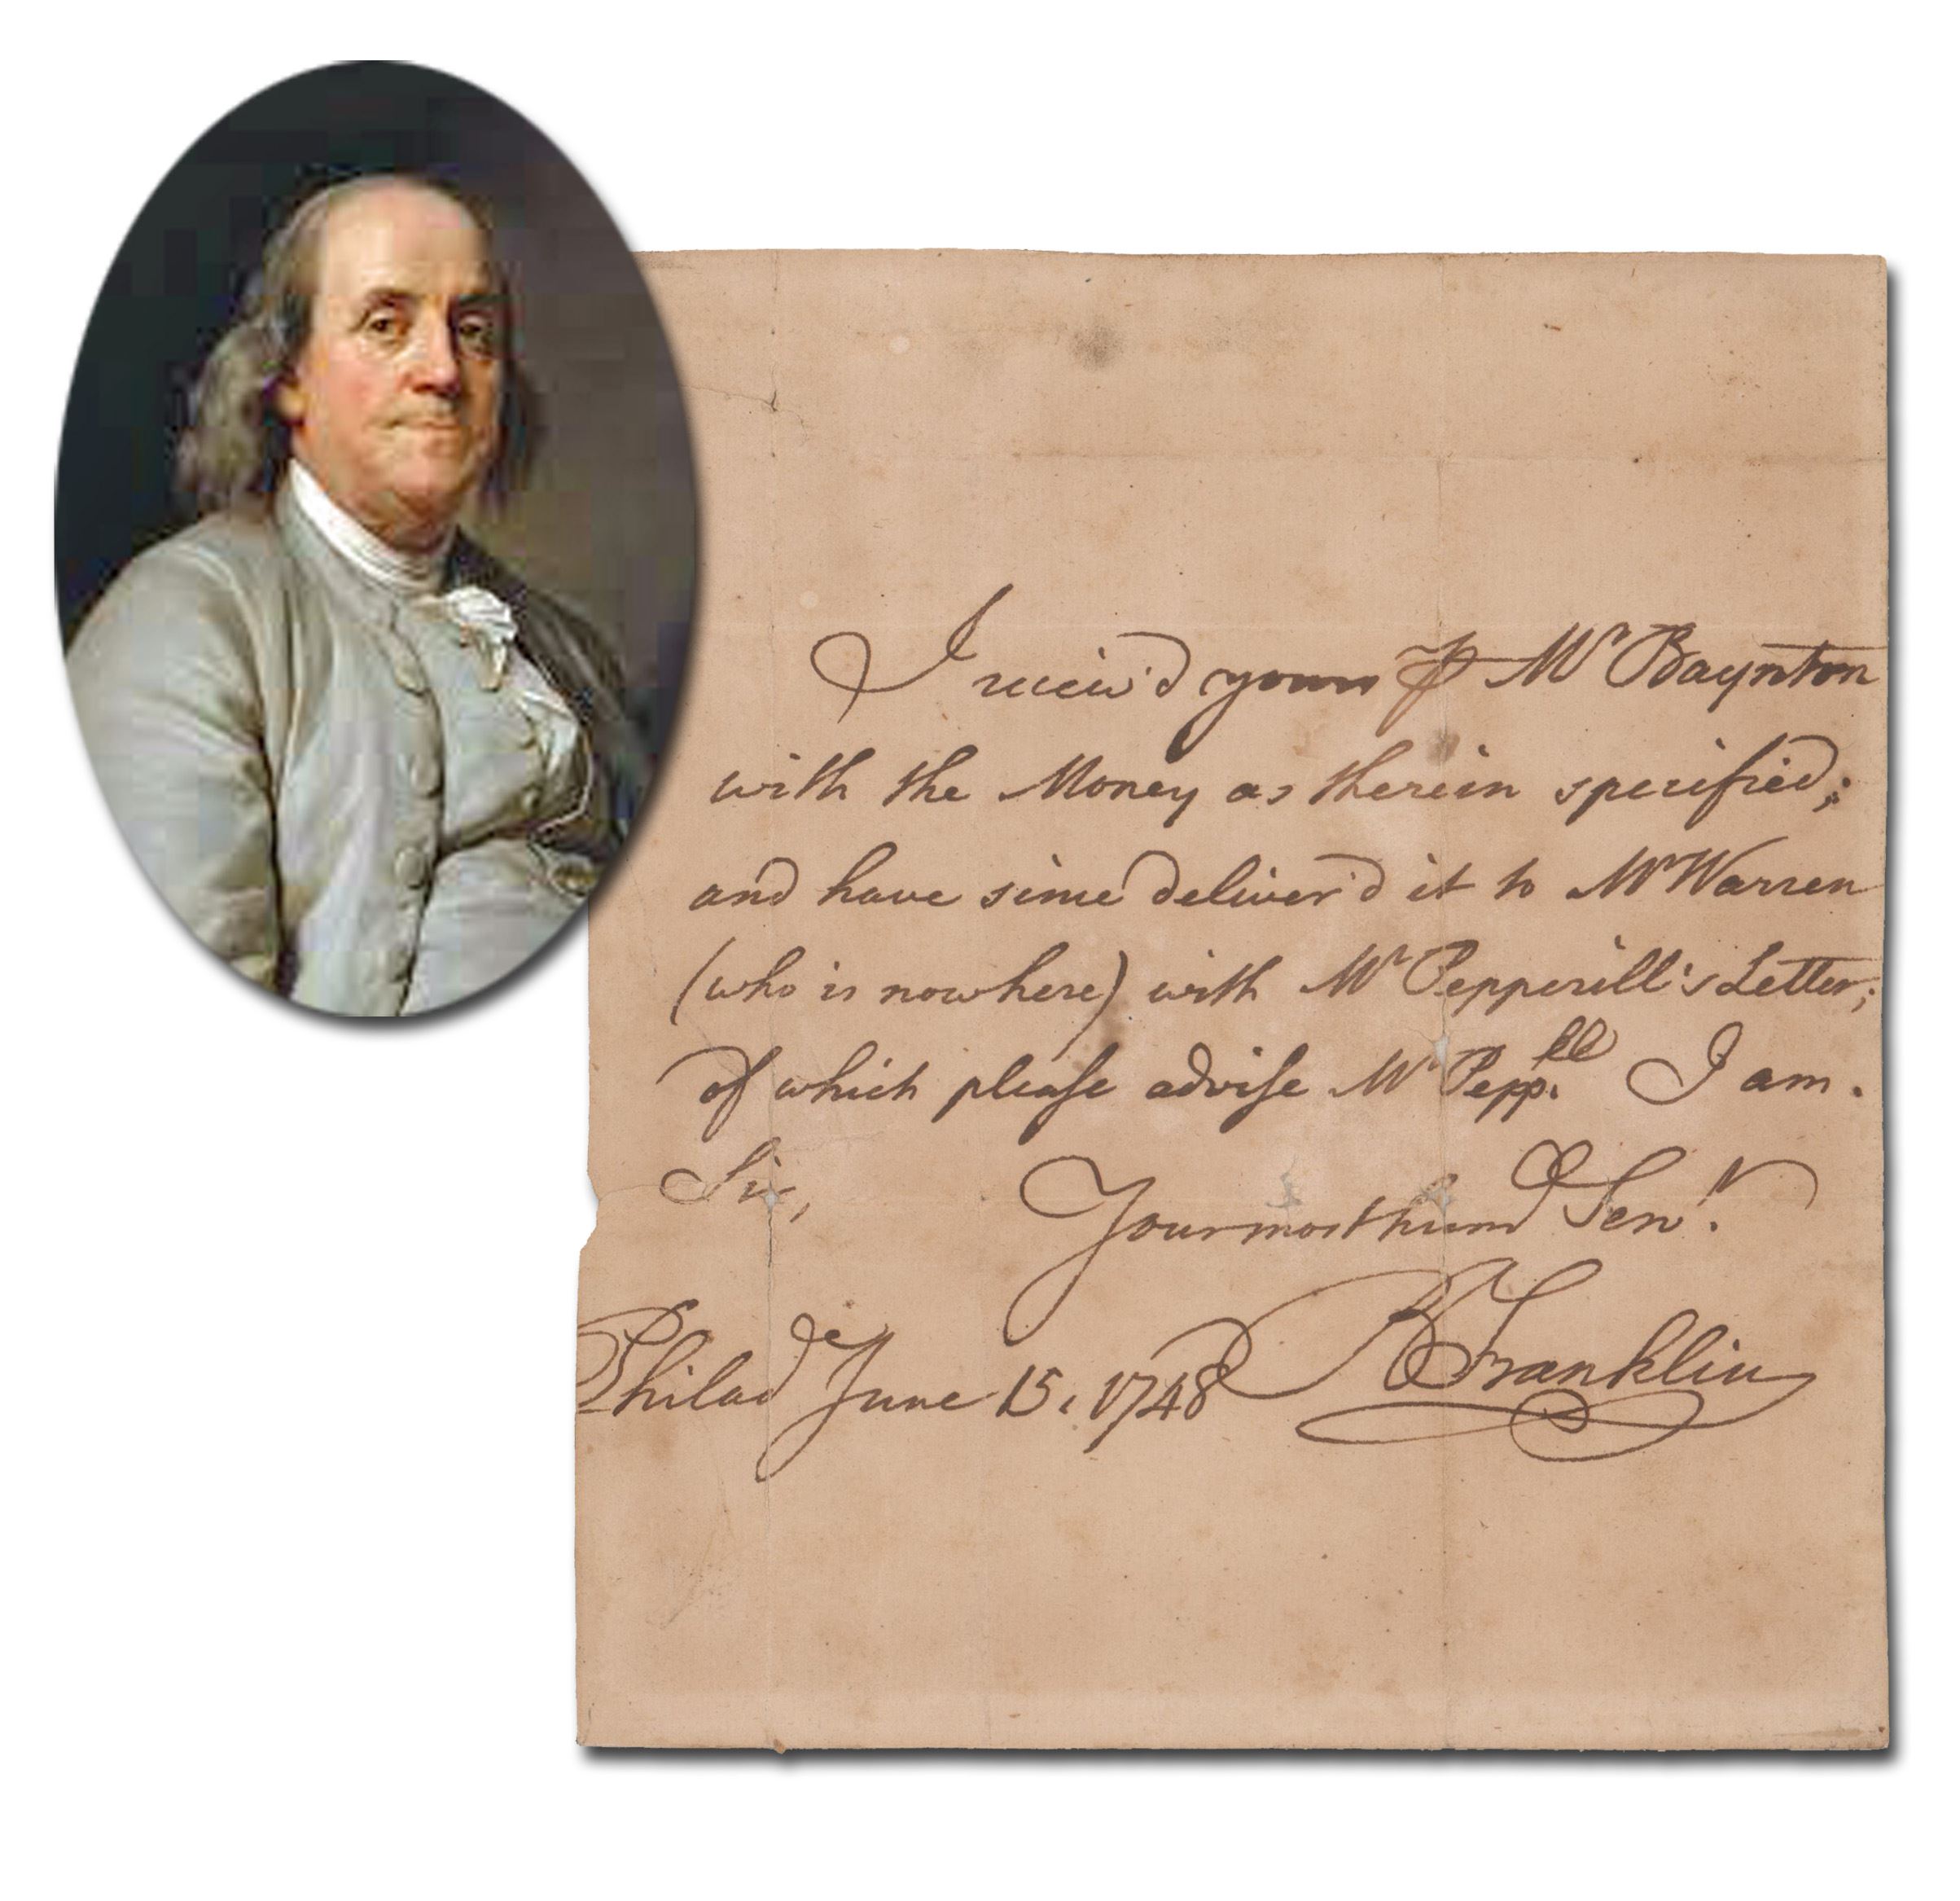 I receiv'd yours ⅌ Mr Baynton
with the Money as therein specified;
and have since deliver'd it to Mr Warren
(who is now here) with Mr Pepperill's Letter;
of which pleaſe adviſe Mr Pepp.ll I am.
Sir, Your most hum Serv.t
Philad.e June 15, 1748 B Franklin